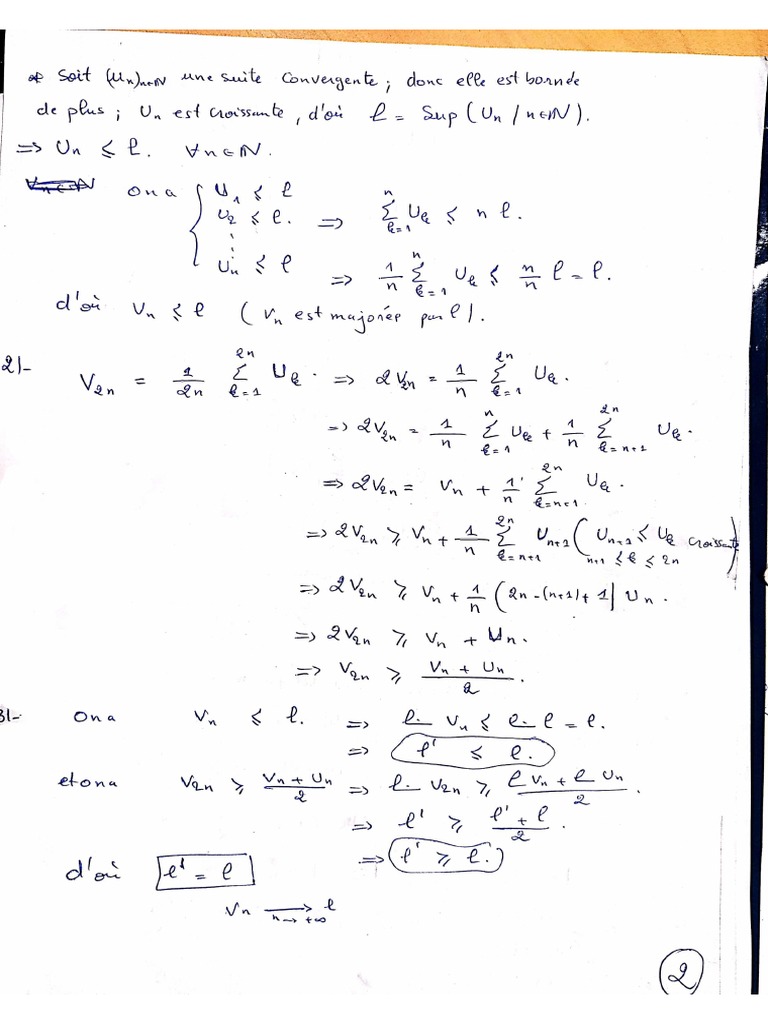 * Soit (Un)n∈N une suite convergente; donc elle est bornée
de plus; Un est croissante, d'où l = Sup (Un / n∈N).
=> Un ≤ l. ∀n∈N.
ona { U1 ≤ l
U2 ≤ l. => Σ_{k=1}^{n} Uk ≤ n l.
⋮
Un ≤ l => 1/n Σ_{k=1}^{n} Uk ≤ n/n l = l.
d'où Vn ≤ l (Vn est majorée par l).
2/- V2n = 1/2n Σ_{k=1}^{2n} Uk. => 2V2n = 1/n Σ_{k=1}^{2n} Uk.
=> 2V2n = 1/n Σ_{k=1}^{n} Uk + 1/n Σ_{k=n+1}^{2n} Uk.
=> 2V2n = Vn + 1/n Σ_{k=n+1}^{2n} Uk.
=> 2V2n ≥ Vn + 1/n Σ_{k=n+1}^{2n} Un+1 (Un+1 ≤ Uk croissante
n+1 ≤ k ≤ 2n)
=> 2V2n ≥ Vn + 1/n (2n-(n+1)+1) Un.
=> 2V2n ≥ Vn + Un.
=> V2n ≥ (Vn + Un)/2.
3/- Ona Vn ≤ l. => li Vn ≤ li l = l.
=> l' ≤ l.
et ona V2n ≥ (Vn + Un)/2 => li V2n ≥ (l Vn + l Un)/2.
=> l' ≥ (l' + l)/2.
=> l' ≥ l.
d'où l' = l
Vn ⟶ l
n→+∞
2